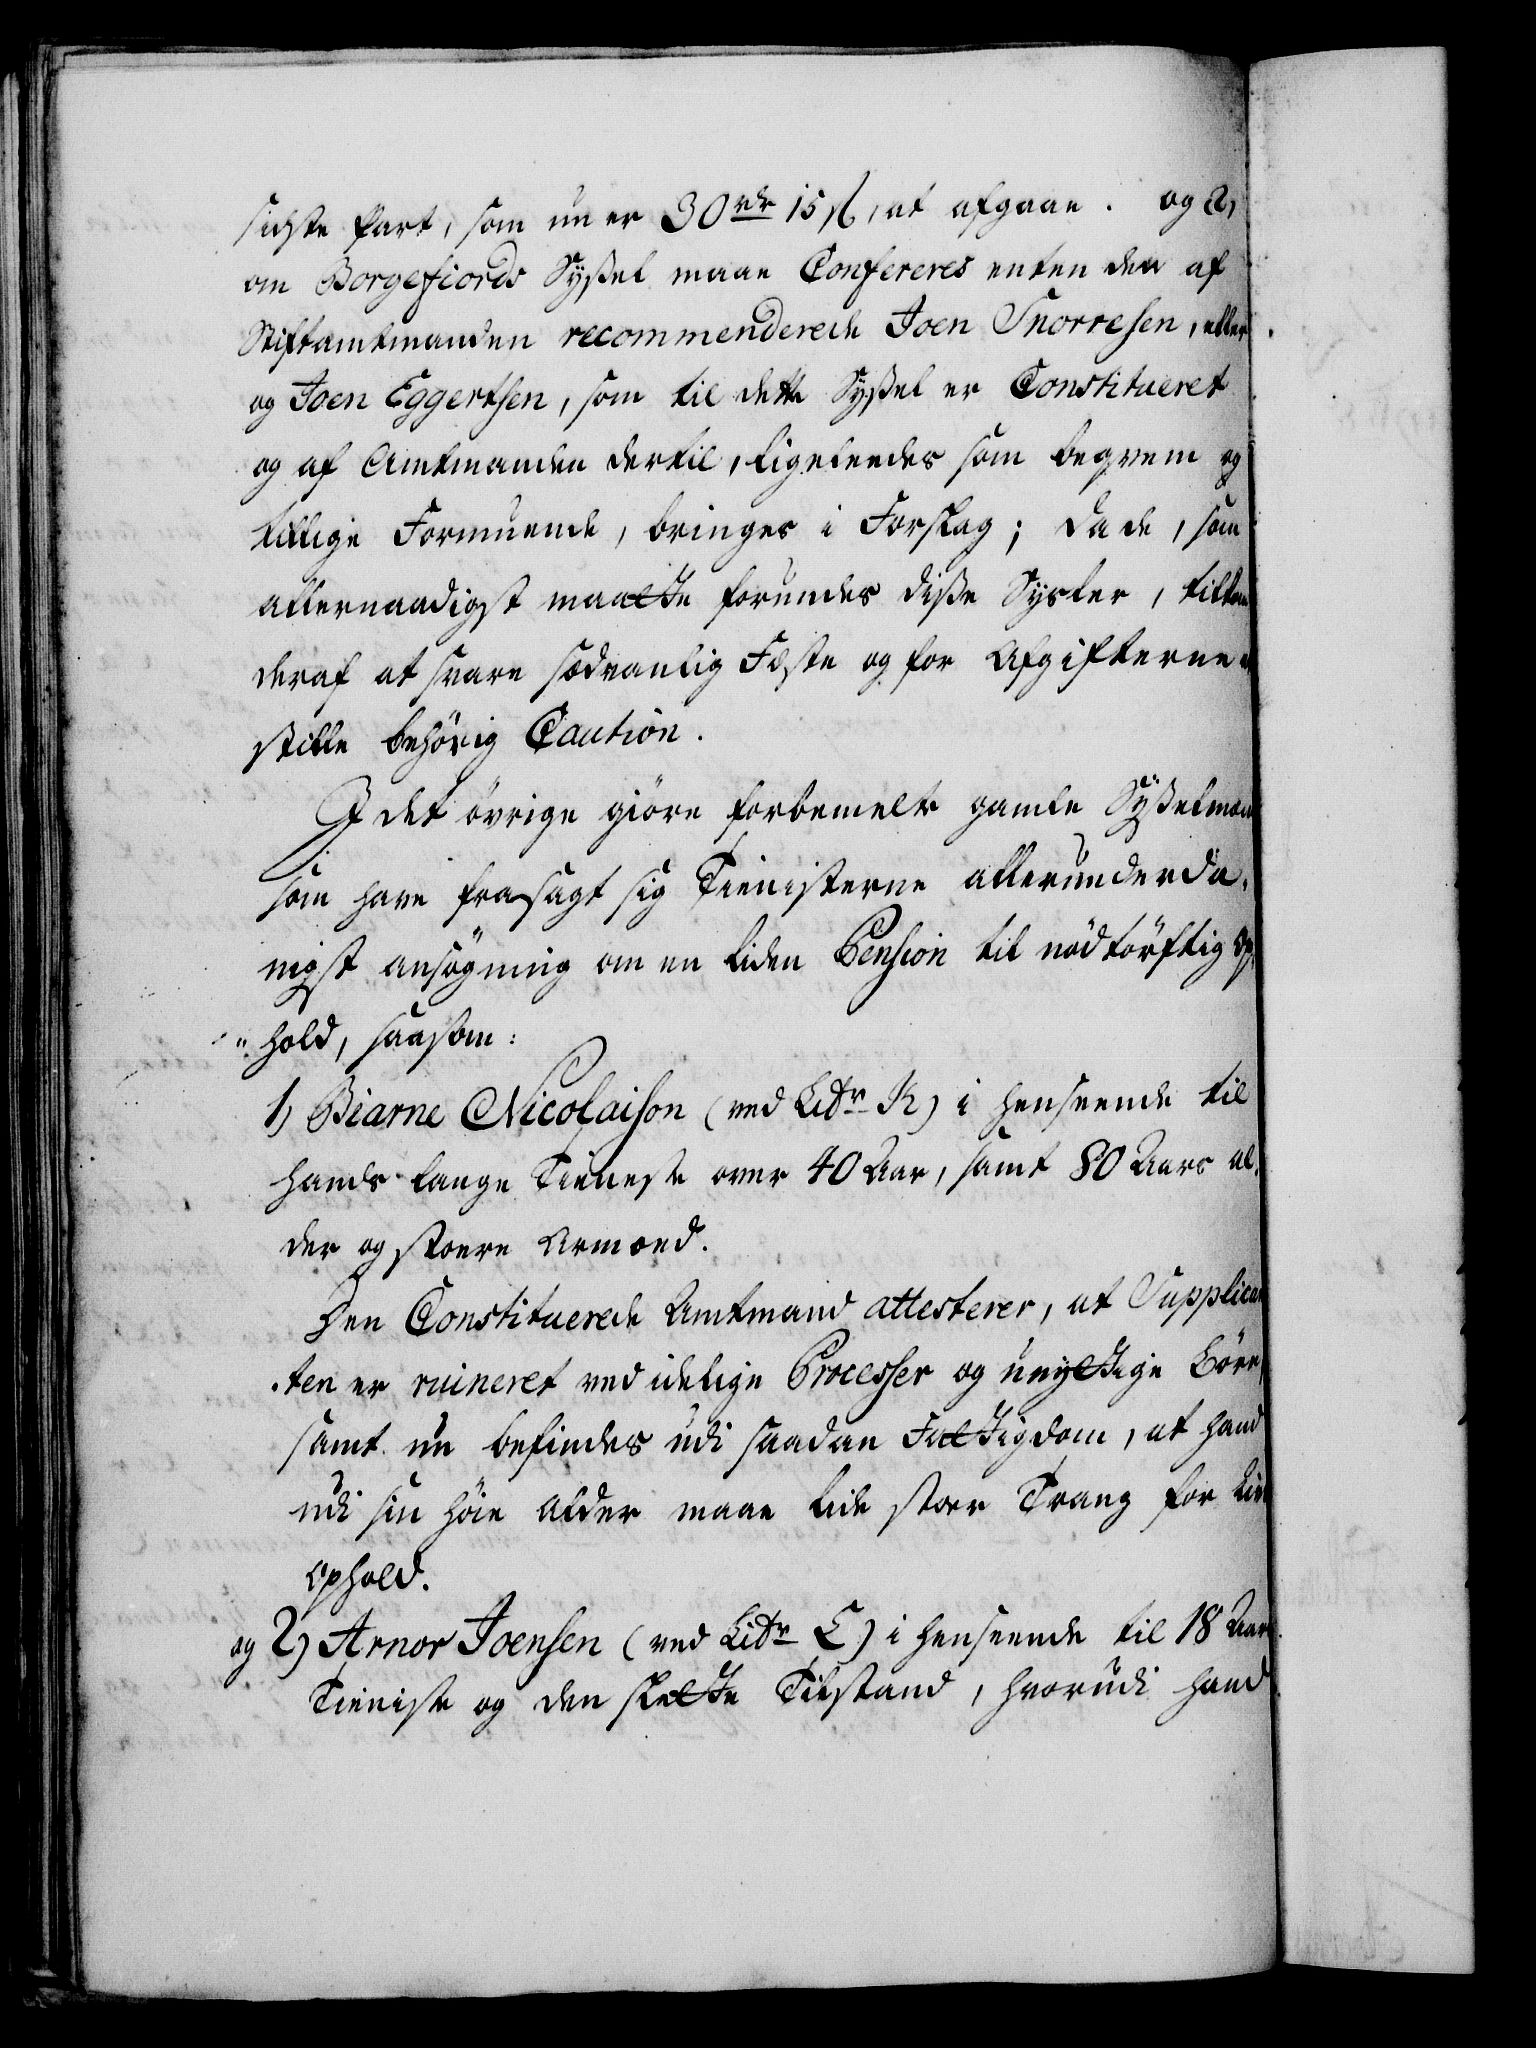 sidste Part, som nu er 30 rdr 15 ß, at afgaae. og 2,
om Borgefiords Syssel maae Confereres enten den af
Stiftamtmanden recommenderede Joen Snorresen, eller
og Joen Eggertsen, som til dette Syssel er Constitueret
og af Amtmanden dertil, ligeledes som beqvem og
tillige Formuende, bringes i Forslag; da de, som
allernaadigst maatte forundes disse Sysler,
deraf at svare sædvanlig Fæste og for Afgifterne
stille behörig Caution.
I det övrige giöre forbemelte gamle Sysselmænd
som have frasagt sig Tienisterne allerunderda-
nigst ansögning om en liden Pension til nödtörftig Op-
hold, saasom:
1) Biarne Nicolaison (ved Litr K) i henseende til
hands lange Tieneste over 40 Aar, samt 80 Aars al-
der og stoere Armoed.
Den Constituerede Amtmand attesterer, at Supplican-
ten er ruineret ved idelige Processer og unyttige Börn,
samt nu befindes udi saadan Fattigdom, at hand
udi sin höie Alder maae lide stoer Trang for Livs
Ophold.
og 2) Arnor Joensen (ved Litr L) i henseende til 18 Aars
Tieniste og den slette Tilstand, hvorudi hand